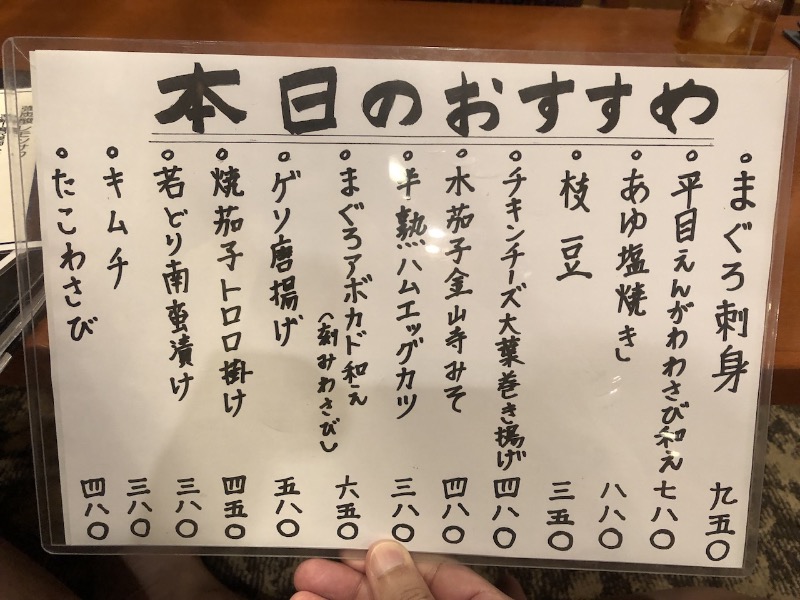 本日のおすすめ
まぐろ刺身 九五〇
平目えんがわわさび和え 七八〇
あゆ塩焼き 八八〇
枝豆 三五〇
チキンチーズ大葉巻き揚げ 四八〇
水茄子金山寺みそ 四八〇
半熟ハムエッグカツ 三八〇
まぐろアボカド和え(刻みわさび) 六五〇
ゲソ唐揚げ 五八〇
焼茄子トロロ掛け 四五〇
若どり南蛮漬け 三八〇
キムチ 三八〇
たこわさび 四八〇